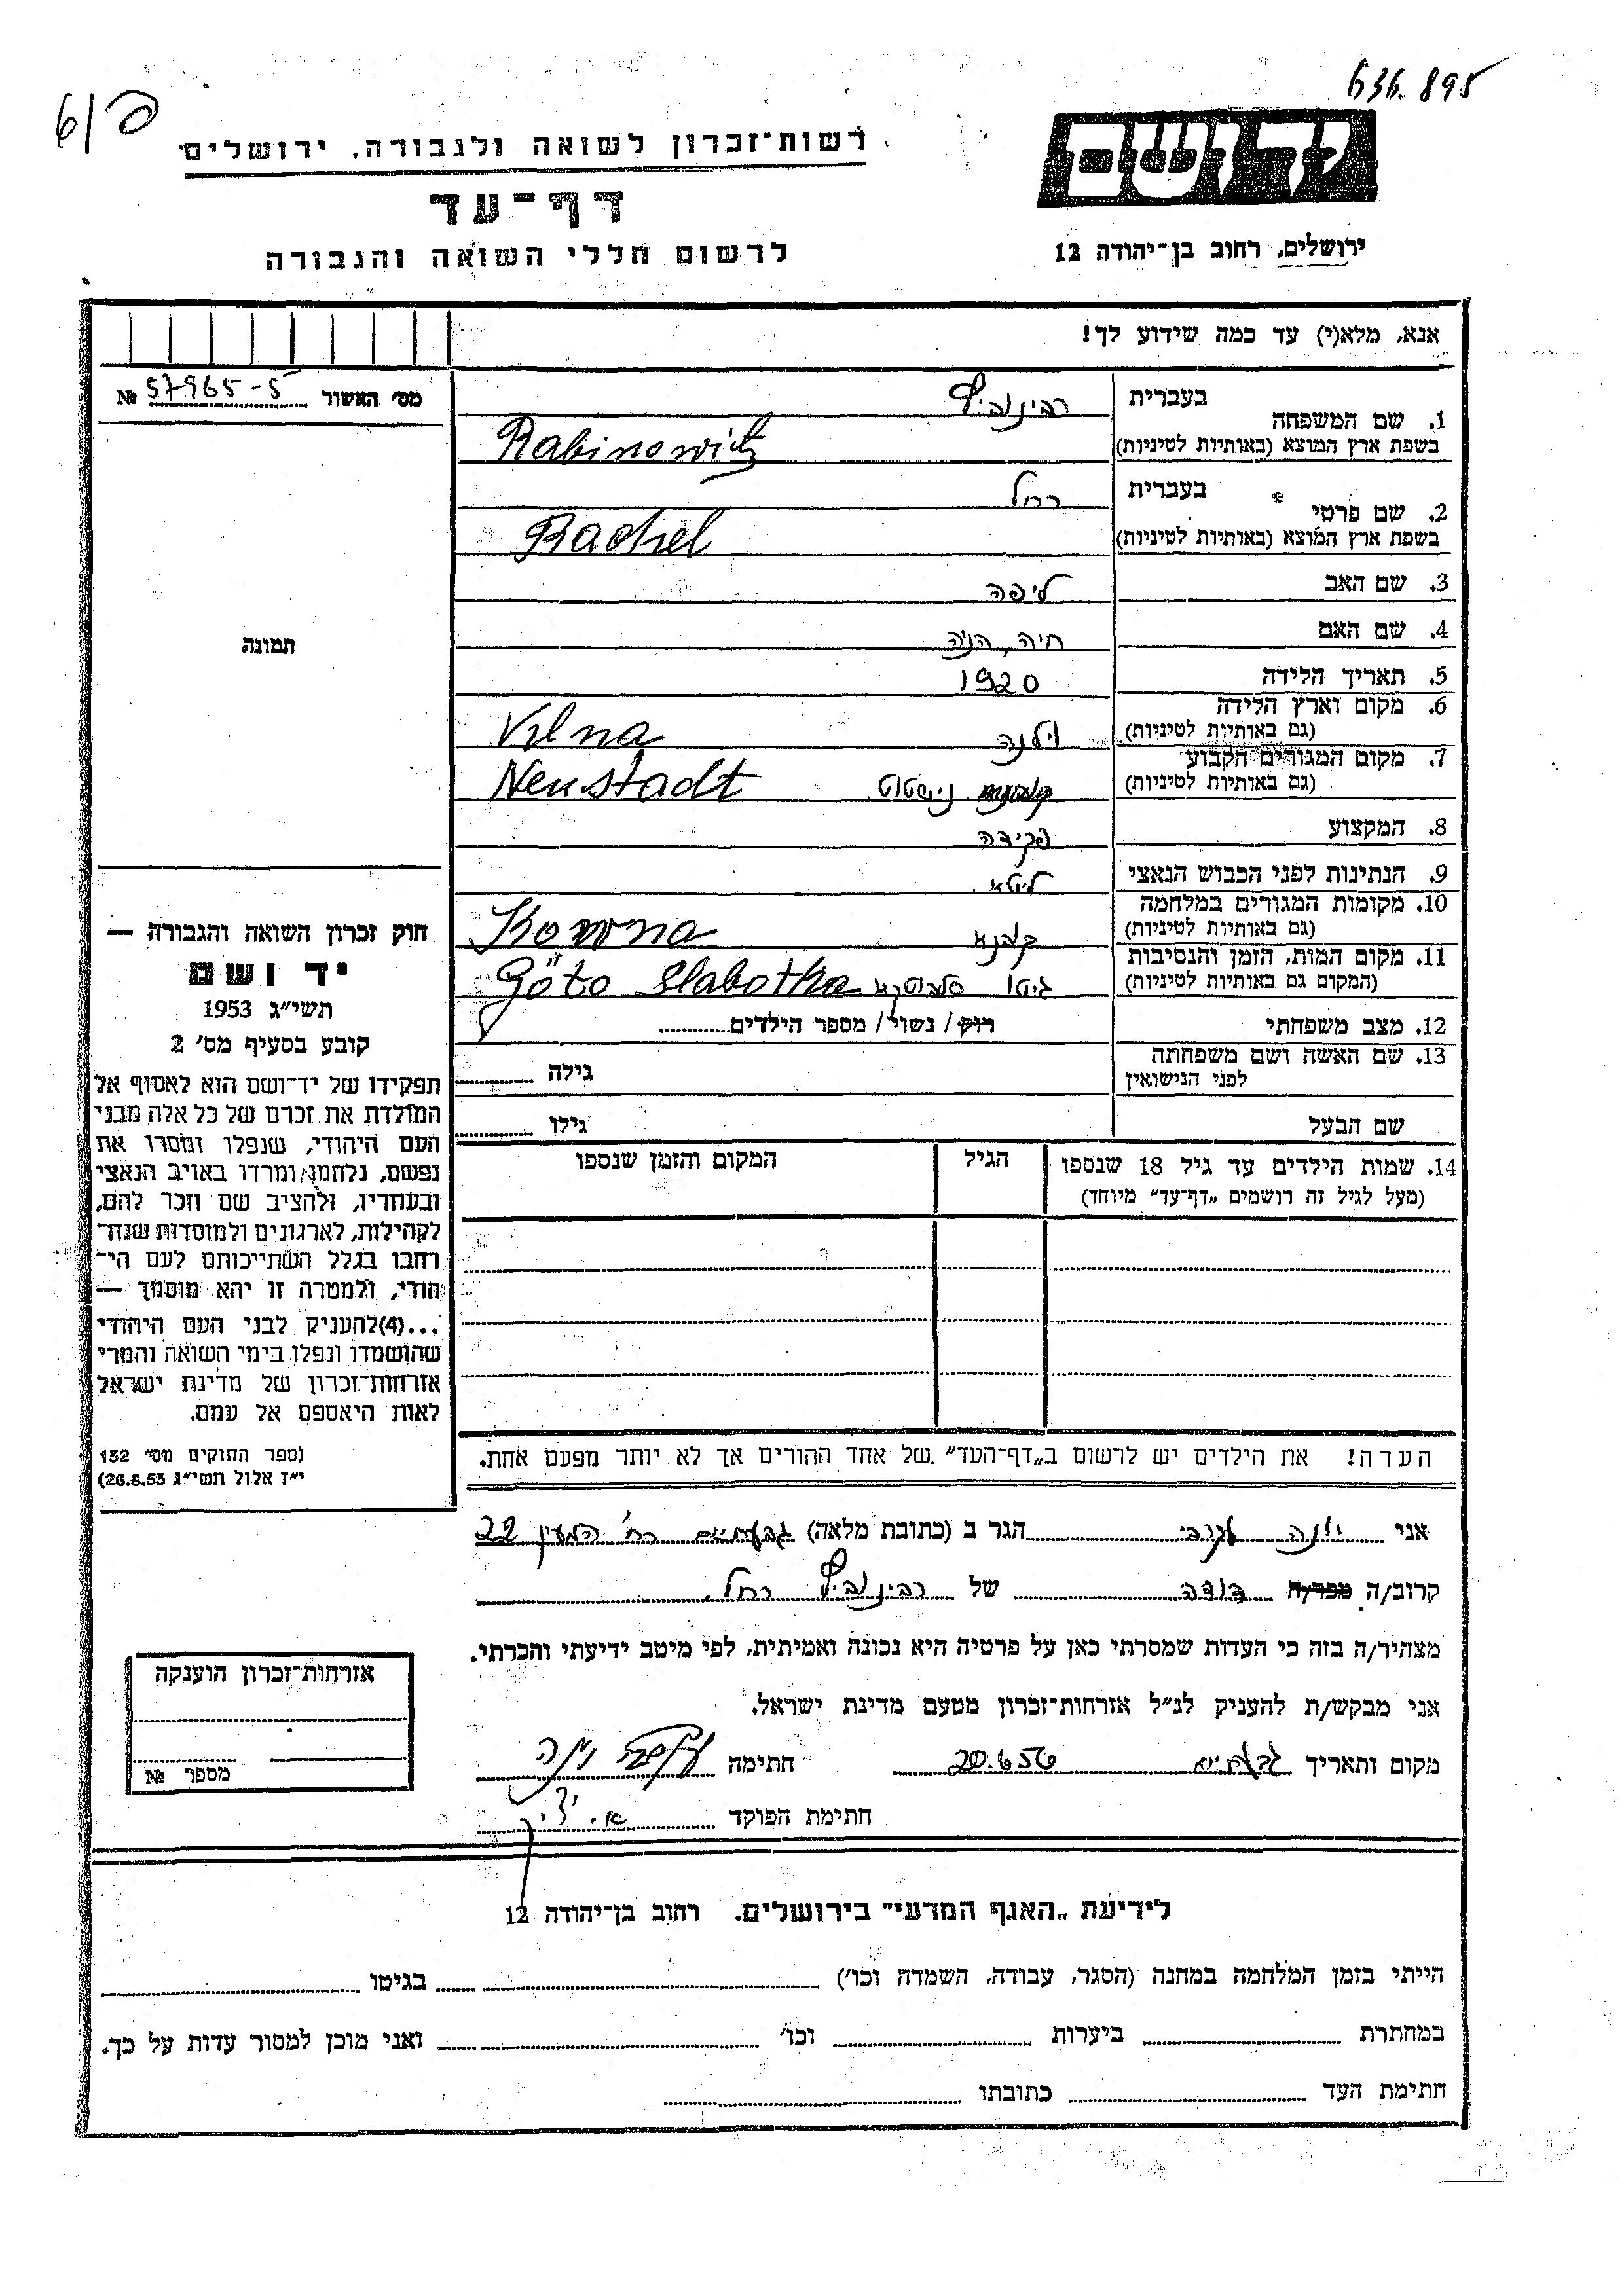 636.895
6/פ
יד ושם
ירושלים, רחוב בן-יהודה 12
רשות-זכרון לשואה ולגבורה, ירושלים
דף-עד
לרשום חללי השואה והגבורה
אנא, מלא(י) עד כמה שידוע לך!
מס' האשור № 57965-5
תמונה
1. שם המשפחה בעברית רבינוביץ
בשפת ארץ המוצא (באותיות לטיניות) Rabinowitz
2. שם פרטי בעברית רחל
בשפת ארץ המוצא (באותיות לטיניות) Rachel
3. שם האב ליפה
4. שם האם חיה, הניה
5. תאריך הלידה 1920
6. מקום וארץ הלידה
(גם באותיות לטיניות) וילנה Vilna
7. מקום המגורים הקבוע
(גם באותיות לטיניות) נוישטוט Neustadt
8. המקצוע פקידה
9. הנתינות לפני הכבוש הנאצי ליטא
10. מקומות המגורים במלחמה
(גם באותיות לטיניות) קובנא Kowna
11. מקום המות, הזמן והנסיבות
(המקום גם באותיות לטיניות) גיטו סלבוטקא Göto Slabotka
12. מצב משפחתי רוק / נשוי / מספר הילדים
13. שם האשה ושם משפחתה גילה
לפני הנישואין
שם הבעל גילו
14. שמות הילדים עד גיל 18 שנספו הגיל המקום והזמן שנספו
(מעל לגיל זה רושמים „דף-עד" מיוחד)
הערה! את הילדים יש לרשום ב„דף-העד" של אחד ההורים אך לא יותר מפעם אחת.
חוק זכרון השואה והגבורה —
יד ושם
תשי"ג 1953
קובע בסעיף מס' 2
תפקידו של יד-ושם הוא לאסוף אל
המולדת את זכרם של כל אלה מבני
העם היהודי, שנפלו ומסרו את
נפשם, נלחמו ומרדו באויב הנאצי
ובעוזריו, ולהציב שם וזכר להם,
לקהילות, לארגונים ולמוסדות שנח-
רבו בגלל השתייכותם לעם הי-
הודי, ולמטרה זו יהא מוסמך —
...(4) להעניק לבני העם היהודי
שהושמדו ונפלו בימי השואה והמרי
אזרחות-זכרון של מדינת ישראל
לאות היאספם אל עמם.
(ספר החוקים מס' 132
י"ז אלול תשי"ג 26.8.53)
אני יונה הגר ב (כתובת מלאה) גבעתיים רח' המעין 22
קרוב/ה מכר/ה דודה של רבינוביץ רחל.
מצהיר/ה בזה כי העדות שמסרתי כאן על פרטיה היא נכונה ואמיתית, לפי מיטב ידיעתי והכרתי.
אני מבקש/ת להעניק לנ"ל אזרחות-זכרון מטעם מדינת ישראל.
מקום ותאריך גבעתיים 20.6.56 חתימה
חתימת הפוקד
אזרחות-זכרון הוענקה
מספר №
לידיעת „האגף המדעי" בירושלים. רחוב בן-יהודה 12
הייתי בזמן המלחמה במחנה (הסגר, עבודה, השמדה וכו') בגיטו
במחתרת ביערות וכו' ואני מוכן למסור עדות על כך.
חתימת העד כתובתו